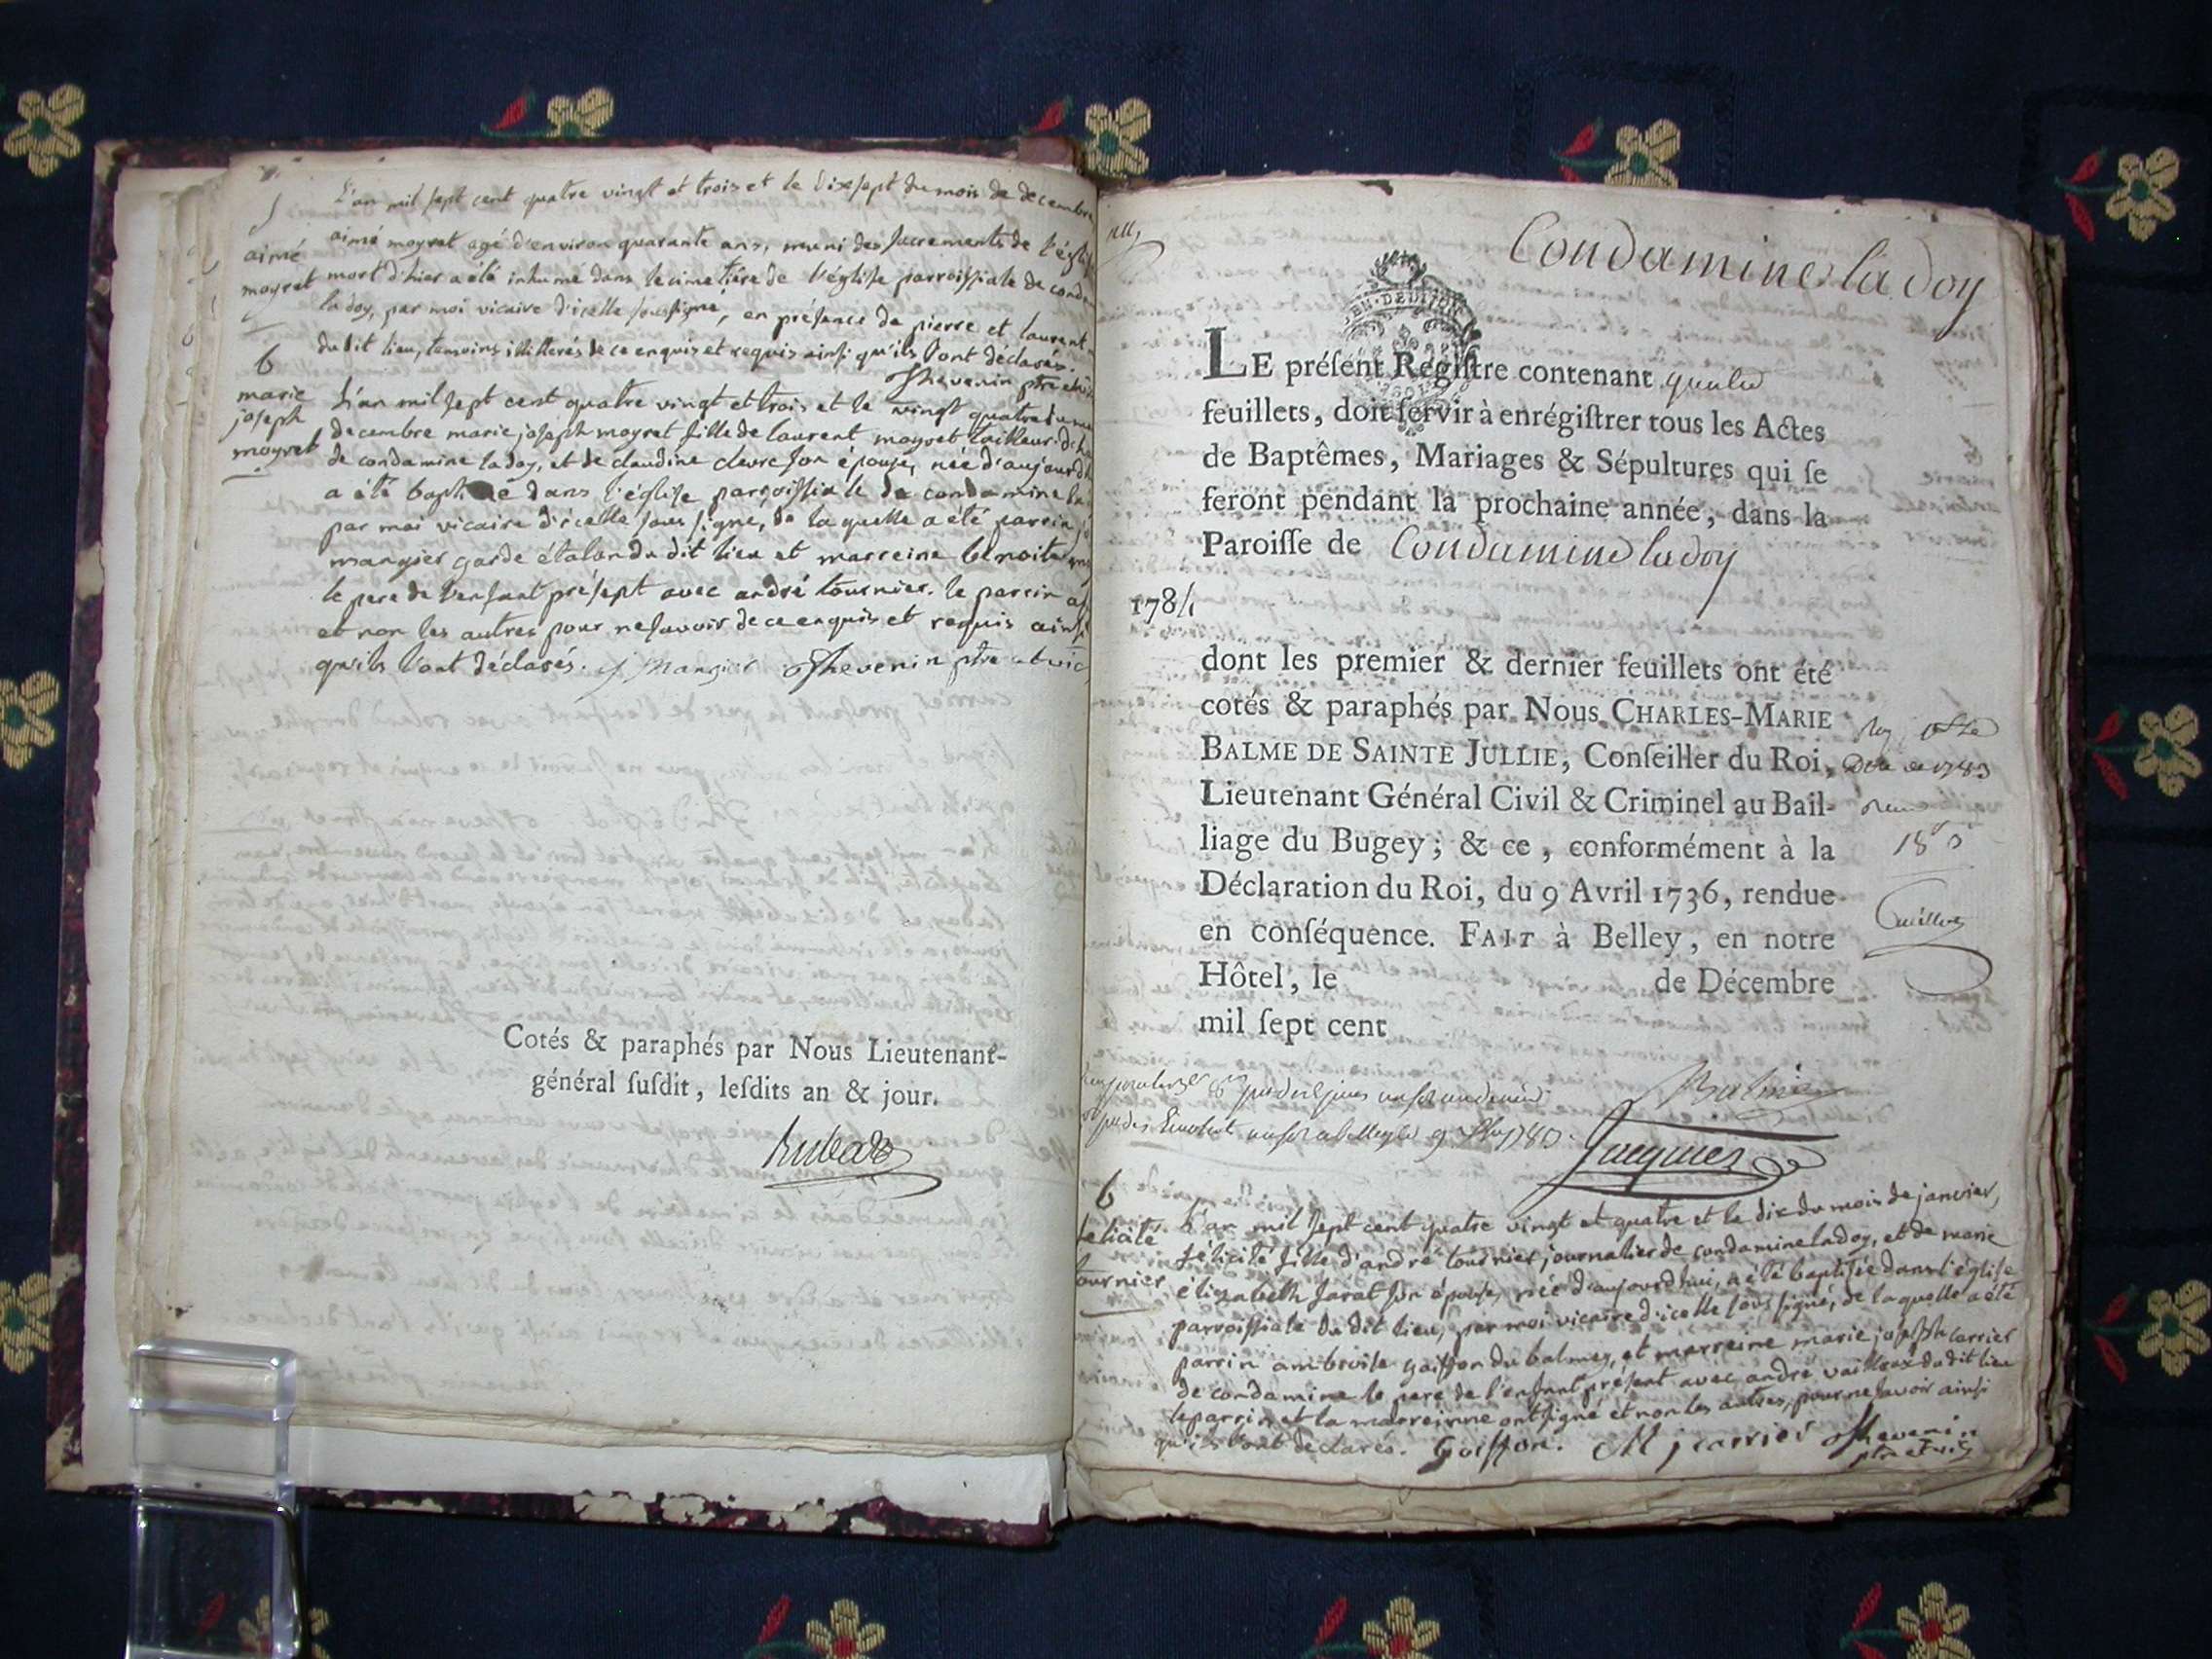 L'an mil sept cent quatre vingt et trois et le dix sept du mois de decembre
aimé
moyret
aimé moyret agé d'environ quarante ans, muni des sacrements de l'église
mort d'hier a été inhumé dans le cimetiére de l'église parroissiale de
la doy, par moi vicaire d'icelle soussigné, en présence de pierre et laurent
du dit lieu, temoins illitterés de ce enquis et requis ainsi qu'ils l'ont declarés.
Thevenin ptre
6
marie
joseph
moyret
L'an mil sept cent quatre vingt et trois et le vingt quatre du
decembre marie joseph moyret fille de laurent moyret tailleur
de condamine la doy, et de claudine son épouse, née d'aujourd
a été dans l'église parroissiale de condamine la
par moi vicaire d'icelle sous signé, de la quelle a été parrin
mangier garde étalon du dit lieu et marreine benoite
le pere de l'enfant présent avec andré tournier. le parrin a
et non les autres pour ne savoir de ce enquis et requis ainsi
qu'ils l'ont déclarés. j mangier Thevenin ptre et vic
Cotés & paraphés par Nous Lieutenant-
général ſuſdit, leſdits an & jour.
Condamine la doy
LE préſent Regiſtre contenant quatre
feuillets, doit ſervir à enrégiſtrer tous les Actes
de Baptêmes, Mariages & Sépultures qui ſe
feront pendant la prochaine année, dans la
Paroiſſe de Condamine la doy
1784
dont les premier & dernier feuillets ont été
cotés & paraphés par Nous CHARLES-MARIE
BALME DE SAINTE JULLIE, Conſeiller du Roi,
Lieutenant Général Civil & Criminel au Bail-
liage du Bugey; & ce, conformément à la
Déclaration du Roi, du 9 Avril 1736, rendue
en conſéquence. FAIT à Belley, en notre
Hôtel, le de Décembre
mil ſept cent
Balme
Juvanes
6
felicité
tournier
L'an mil sept cent quatre vingt et quatre et le dix du mois de janvier,
félicité fille d'andré tournier journalier de condamine la doy, et de marie
élizabeth son épouse, née d'aujourd'hui, a été baptisée dans l'église
parroissiale du dit lieu, par moi vicaire d'icelle sous signé, de la quelle a été
parrin ambroise goiffon du balmey, et marreine marie joseph carrier
de condamine le pere de l'enfant présent avec andré vailloux du dit lieu
le parrin et la marreinne ont signé et non les autres, pour ne savoir ainsi
qu'ils l'ont declarés. Goiffon. M j carrier Thevenin
ptre et vic